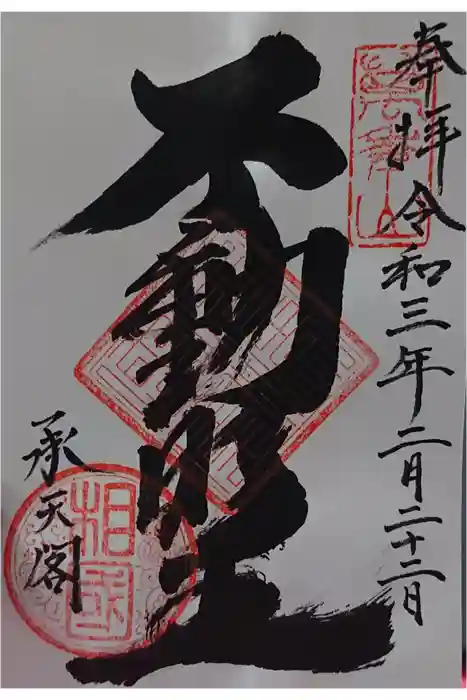 奉拝
令和三年二月二十二日
不動明王
承天閣
相国
萬年山